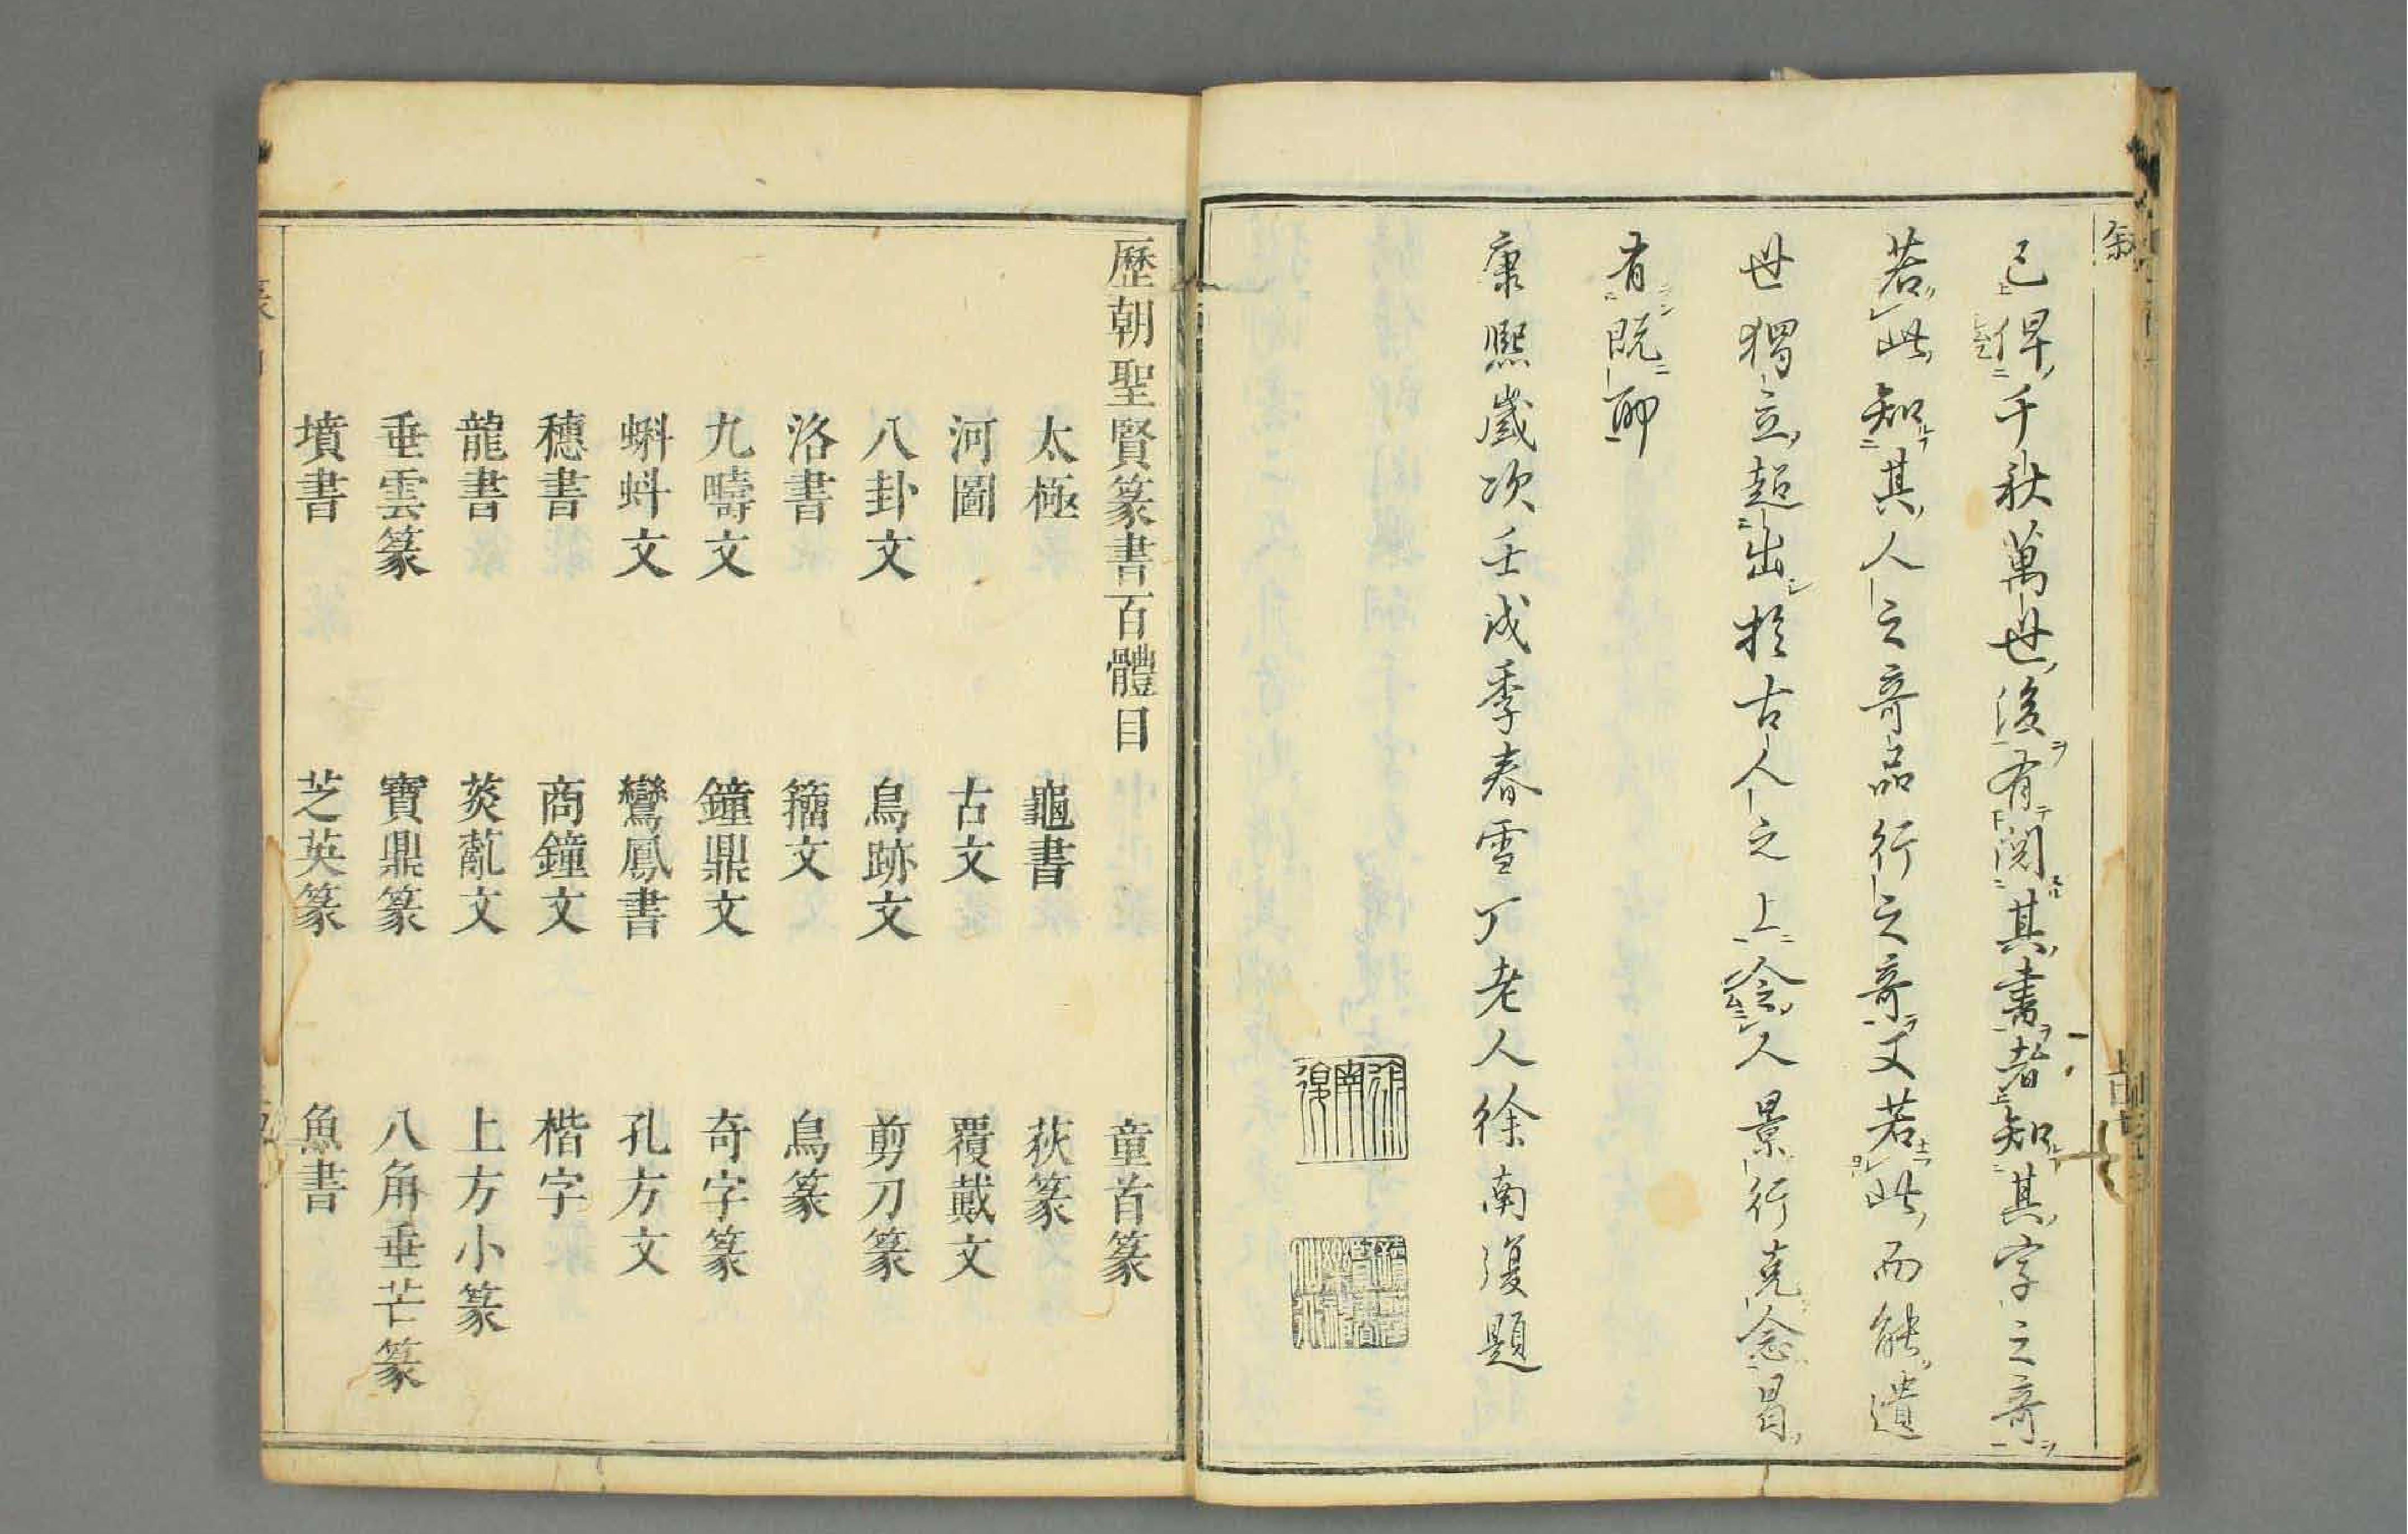 叙
已俾千秋萬世後有閲其書者知其字之奇
若此知其人之奇品行之奇又若此而能遺
世獨立超出於古人之上令人景行克念曷
有既耶
康熙歲次壬戌季春雪丁老人徐南復題
徐南復
歷朝聖賢篆書百體目
童首篆
太極 龜書 荻篆
河圖 古文 覆戴文
八卦文 鳥跡文 剪刀篆
洛書 籀文 鳥篆
九疇文 鐘鼎文 奇字篆
蝌蚪文 鸞鳳書 孔方文
穗書 商鐘文 楷字
龍書 菼薍文 上方小篆
垂雲篆 寶鼎篆 八角垂芒篆
墳書 芝英篆 魚書